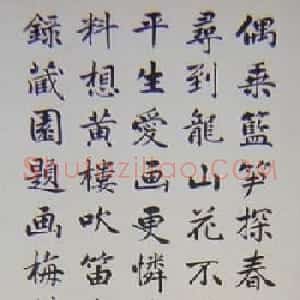 偶乘籃笋探春
尋到龍山花不
平生愛画更憐
料想黃樓吹笛
錄藏園題画梅